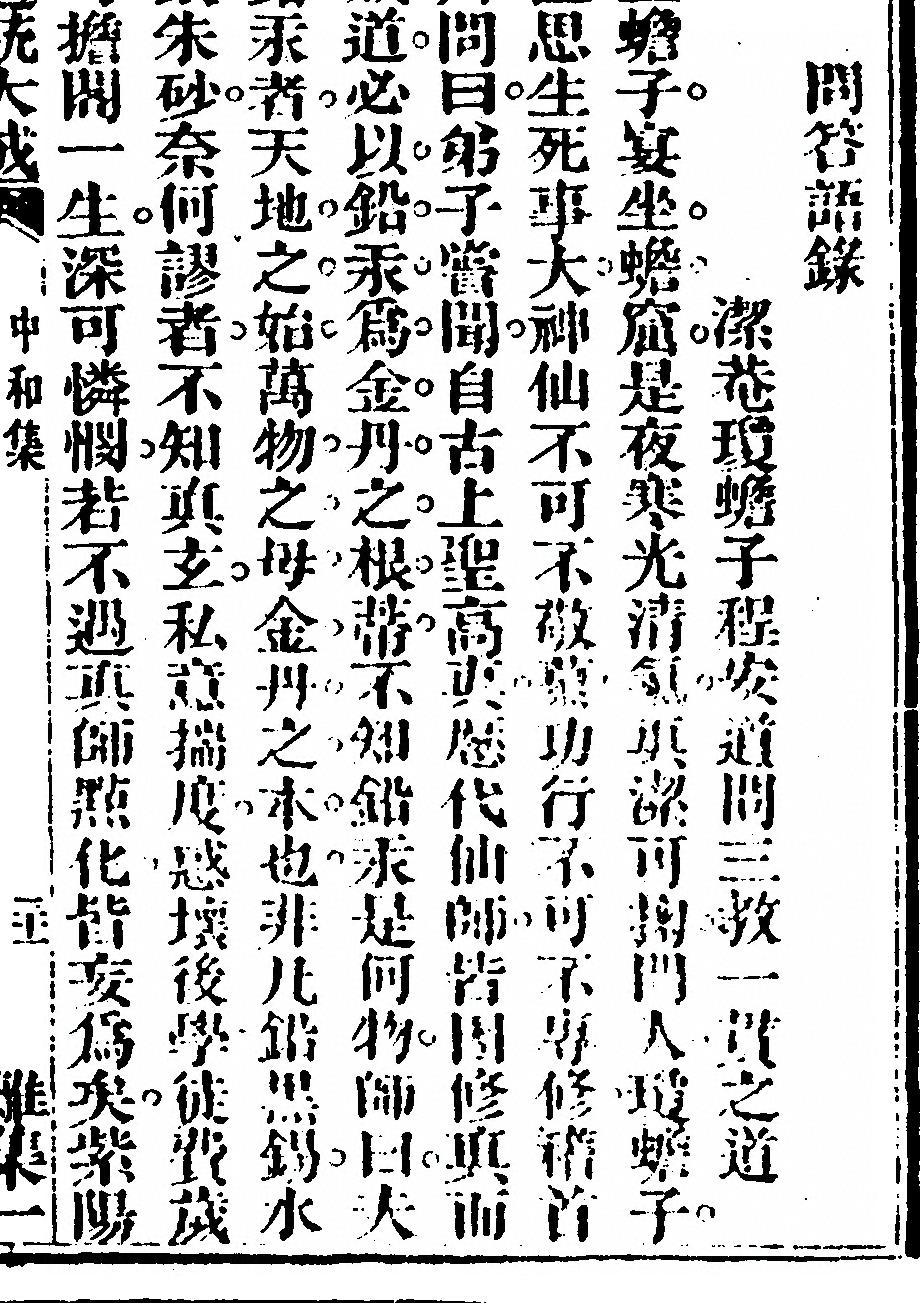 問答語錄
潔菴瓊蟾子程安道問三教一貫之道
蟾子宴坐蟾窟是夜寒光清氣眞潔可掬門人瓊蟾子
思生死事大神仙不可不敬慕功行不可不專修稽首
問曰弟子嘗聞自古上聖高眞歷代仙師皆因修眞而
道必以鉛汞爲金丹之根蒂不知鉛汞是何物師曰夫
汞者天地之始萬物之母金丹之本也非凡鉛黑錫水
朱砂奈何謬者不知眞玄私意揣度惑壞後學徒費歲
擔閣一生深可憐憫若不遇眞師點化皆妄爲矣紫陽
中和集